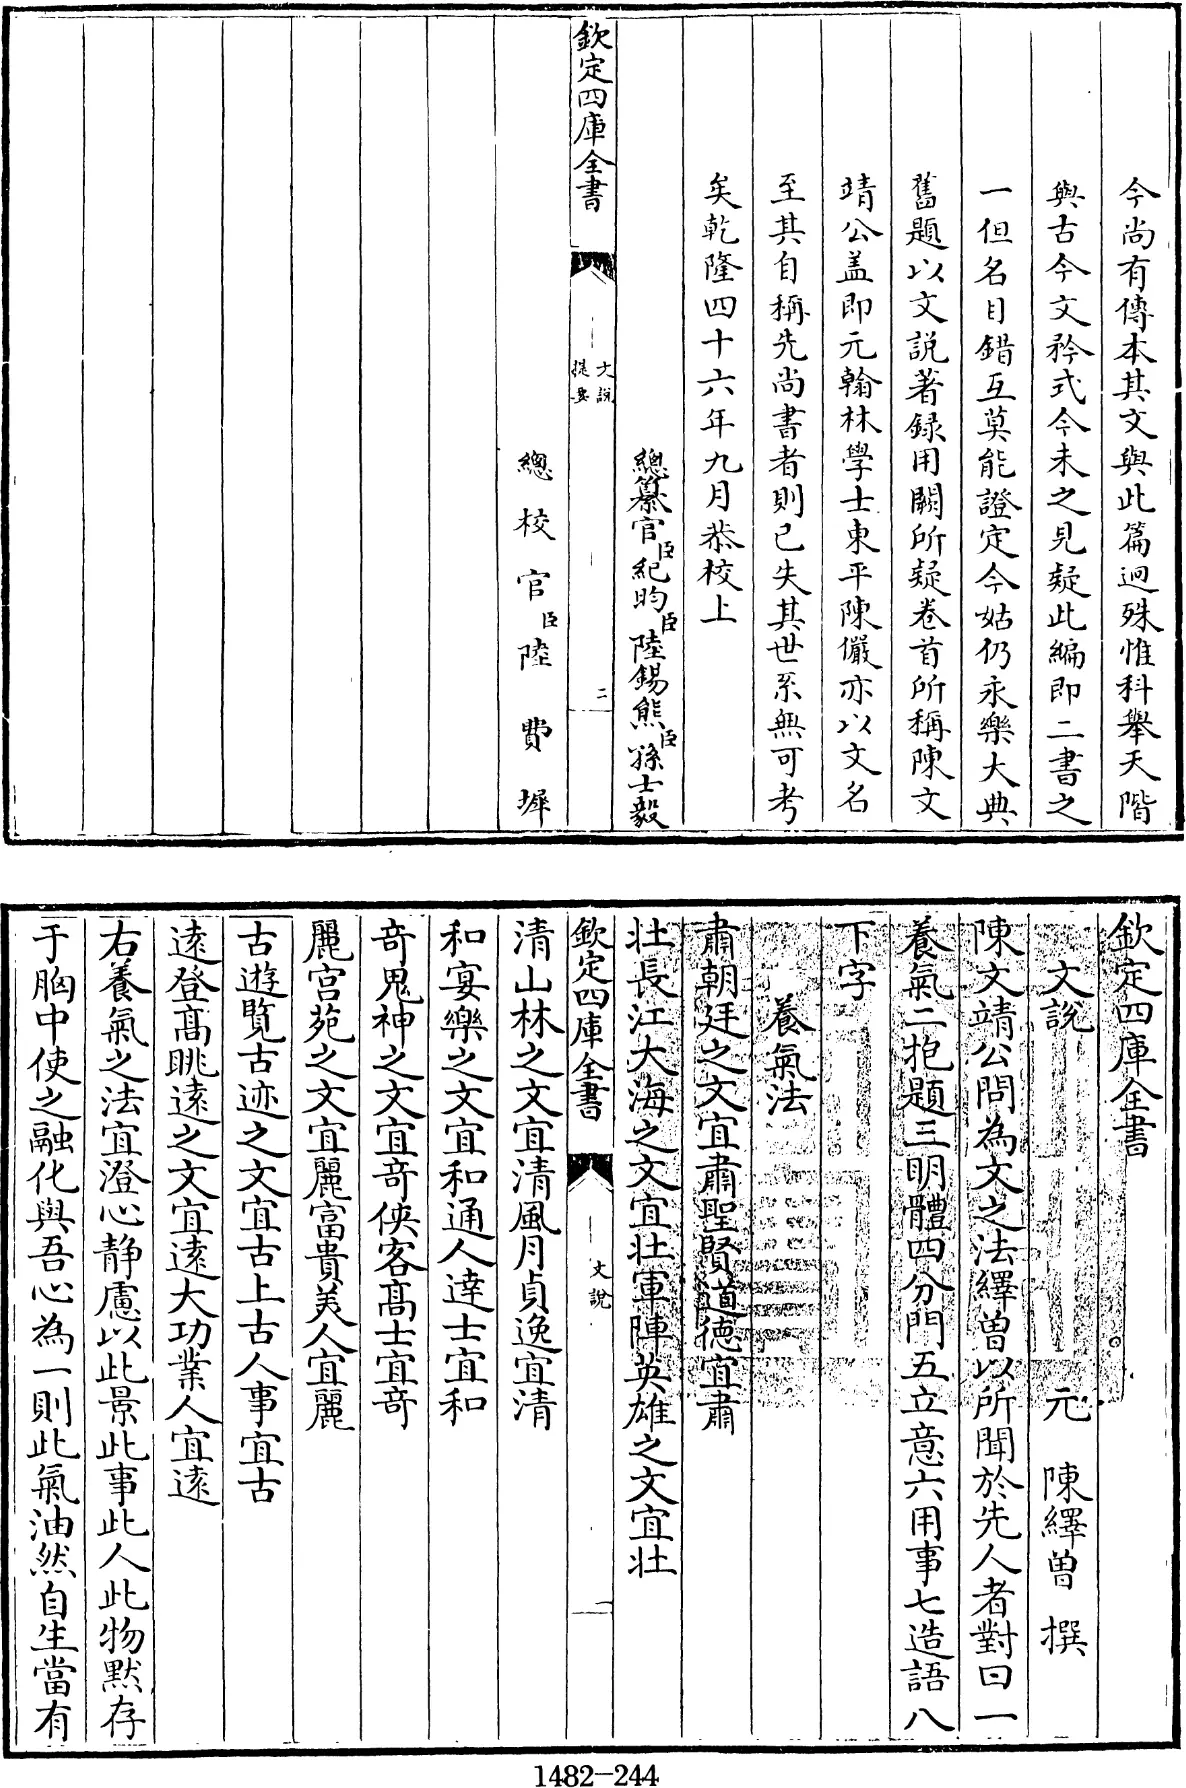 今尚有傳本其文與此篇迥殊惟科舉天階
與古今文矜式今未之見疑此編即二書之
一但名目錯互莫能證定今姑仍永樂大典
舊題以文説著録用闕所疑卷首所稱陳文
靖公盖即元翰林學士東平陳儼亦以文名
至其自稱先尚書者則已失其世系無可考
矣乾隆四十六年九月恭校上
總纂官臣紀昀臣陸錫熊臣孫士毅
欽定四庫全書
文説
提要
二
總校官臣陸費墀
欽定四庫全書
文説
元 陳繹曾 撰
陳文靖公問為文之法繹曾以所聞於先人者對曰一
養氣二抱題三明體四分門五立意六用事七造語八
下字
養氣法
肅朝廷之文宜肅聖賢道德宜肅
壯長江大海之文宜壯軍陣英雄之文宜壯
欽定四庫全書
文説
一
清山林之文宜清風月貞逸宜清
和宴樂之文宜和通人達士宜和
奇鬼神之文宜奇俠客髙士宜奇
麗宫苑之文宜麗富貴美人宜麗
古遊覽古迹之文宜古上古人事宜古
逺登髙眺逺之文宜逺大功業人宜逺
右養氣之法宜澄心静慮以此景此事此人此物黙存
于胸中使之融化與吾心為一則此氣油然自生當有
1482-244